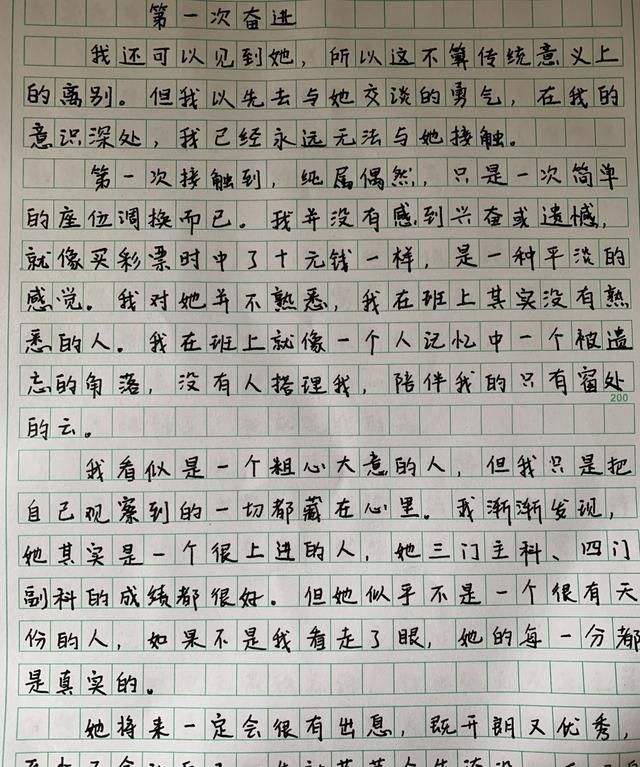 第一次奋进
我还可以见到她，所以这不算传统意义上
的离别。但我以先去与她交谈的勇气，在我的
意识深处，我已经永远无法与她接触。
第一次接触到，纯属偶然，只是一次简单
的座位调换而已。我并没有感到兴奋或遗憾，
就像买彩票时中了十元钱一样，是一种平淡的
感觉。我对她并不熟悉，我在班上其实没有熟
悉的人。我在班上就像一个人记忆中一个被遗
忘的角落，没有人搭理我，陪伴我的只有窗外
200
的云。
我看似是一个粗心大意的人，但我只是把
自己观察到的一切都藏在心里。我渐渐发现，
她其实是一个很上进的人，她三门主科、四门
副科的成绩都很好。但她似乎不是一个很有天
份的人，如果不是我看走了眼，她的每一分都
是真实的。
她将来一定会很有出息，既开朗又优秀，